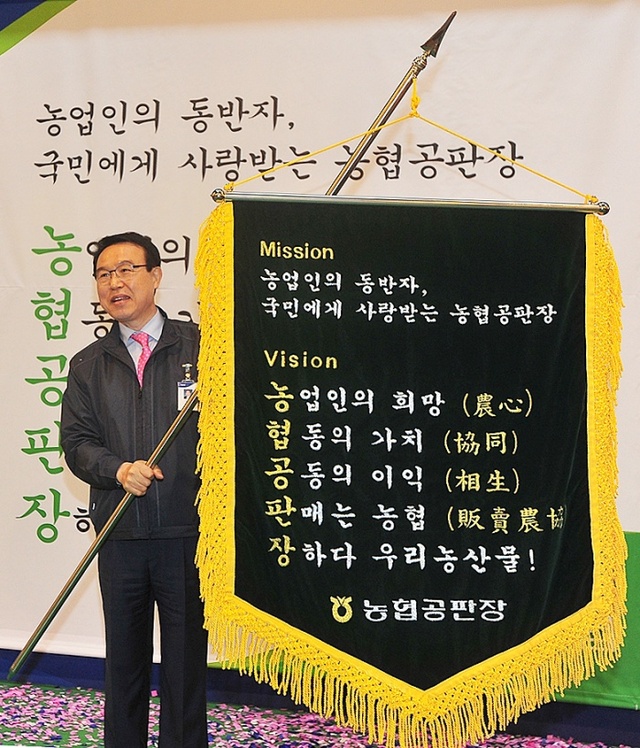 농업인의 동반자,
국민에게 사랑받는 농협공판장
농업인의
협동
공
판
장하
Mission
농업인의 동반자,
국민에게 사랑받는 농협공판장
Vision
농업인의 희망 (農心)
협동의 가치 (協同)
공동의 이익 (相生)
판매는 농협 (販賣農協
장하다 우리농산물!
농협공판장